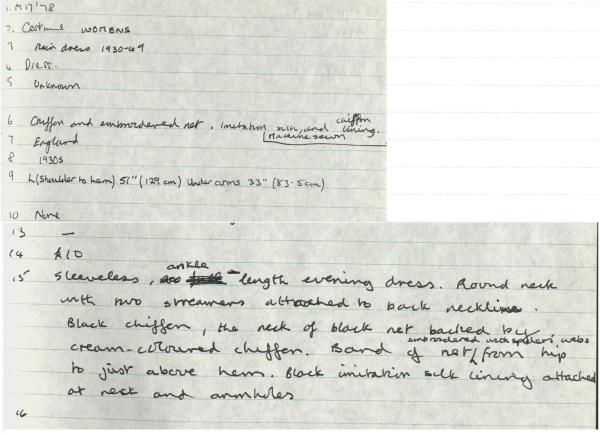 1. M17'78
2. Costume WOMENS
3 Main dress 1930-49
4 Dress.
5 Unknown
6 Chiffon and embroidered net. Imitation silk and chiffon lining.
Machine sewn
7 England
8 1930s
9 L (Shoulder to hem) 51" (129cm) Under arms 33" (83-5cm)
10 None
13 —
14 £10
15 Sleeveless, ankle-length evening dress. Round neck
with two streamers attached to back neckline.
Black chiffon, the neck of black net backed by
cream-coloured chiffon. Band of net embroidered with spiders' webs from hip
to just above hem. Black imitation silk lining attached
at neck and armholes
16